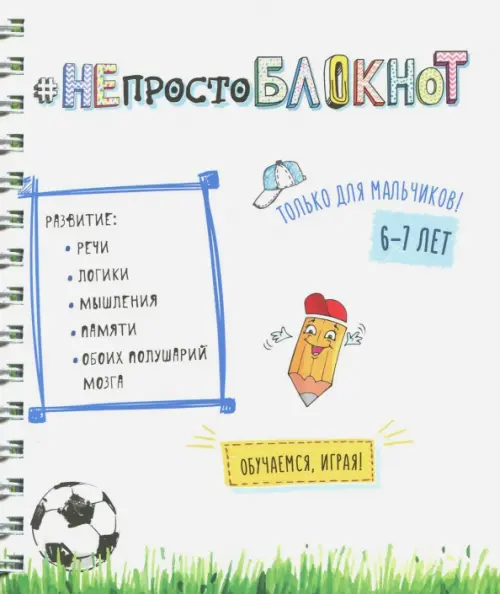 #НЕПРОСТОБЛОКНОТ
ТОЛЬКО ДЛЯ МАЛЬЧИКОВ!
6-7 ЛЕТ
РАЗВИТИЕ:
• РЕЧИ
• ЛОГИКИ
• МЫШЛЕНИЯ
• ПАМЯТИ
• ОБОИХ ПОЛУШАРИЙ
МОЗГА
ОБУЧАЕМСЯ, ИГРАЯ!